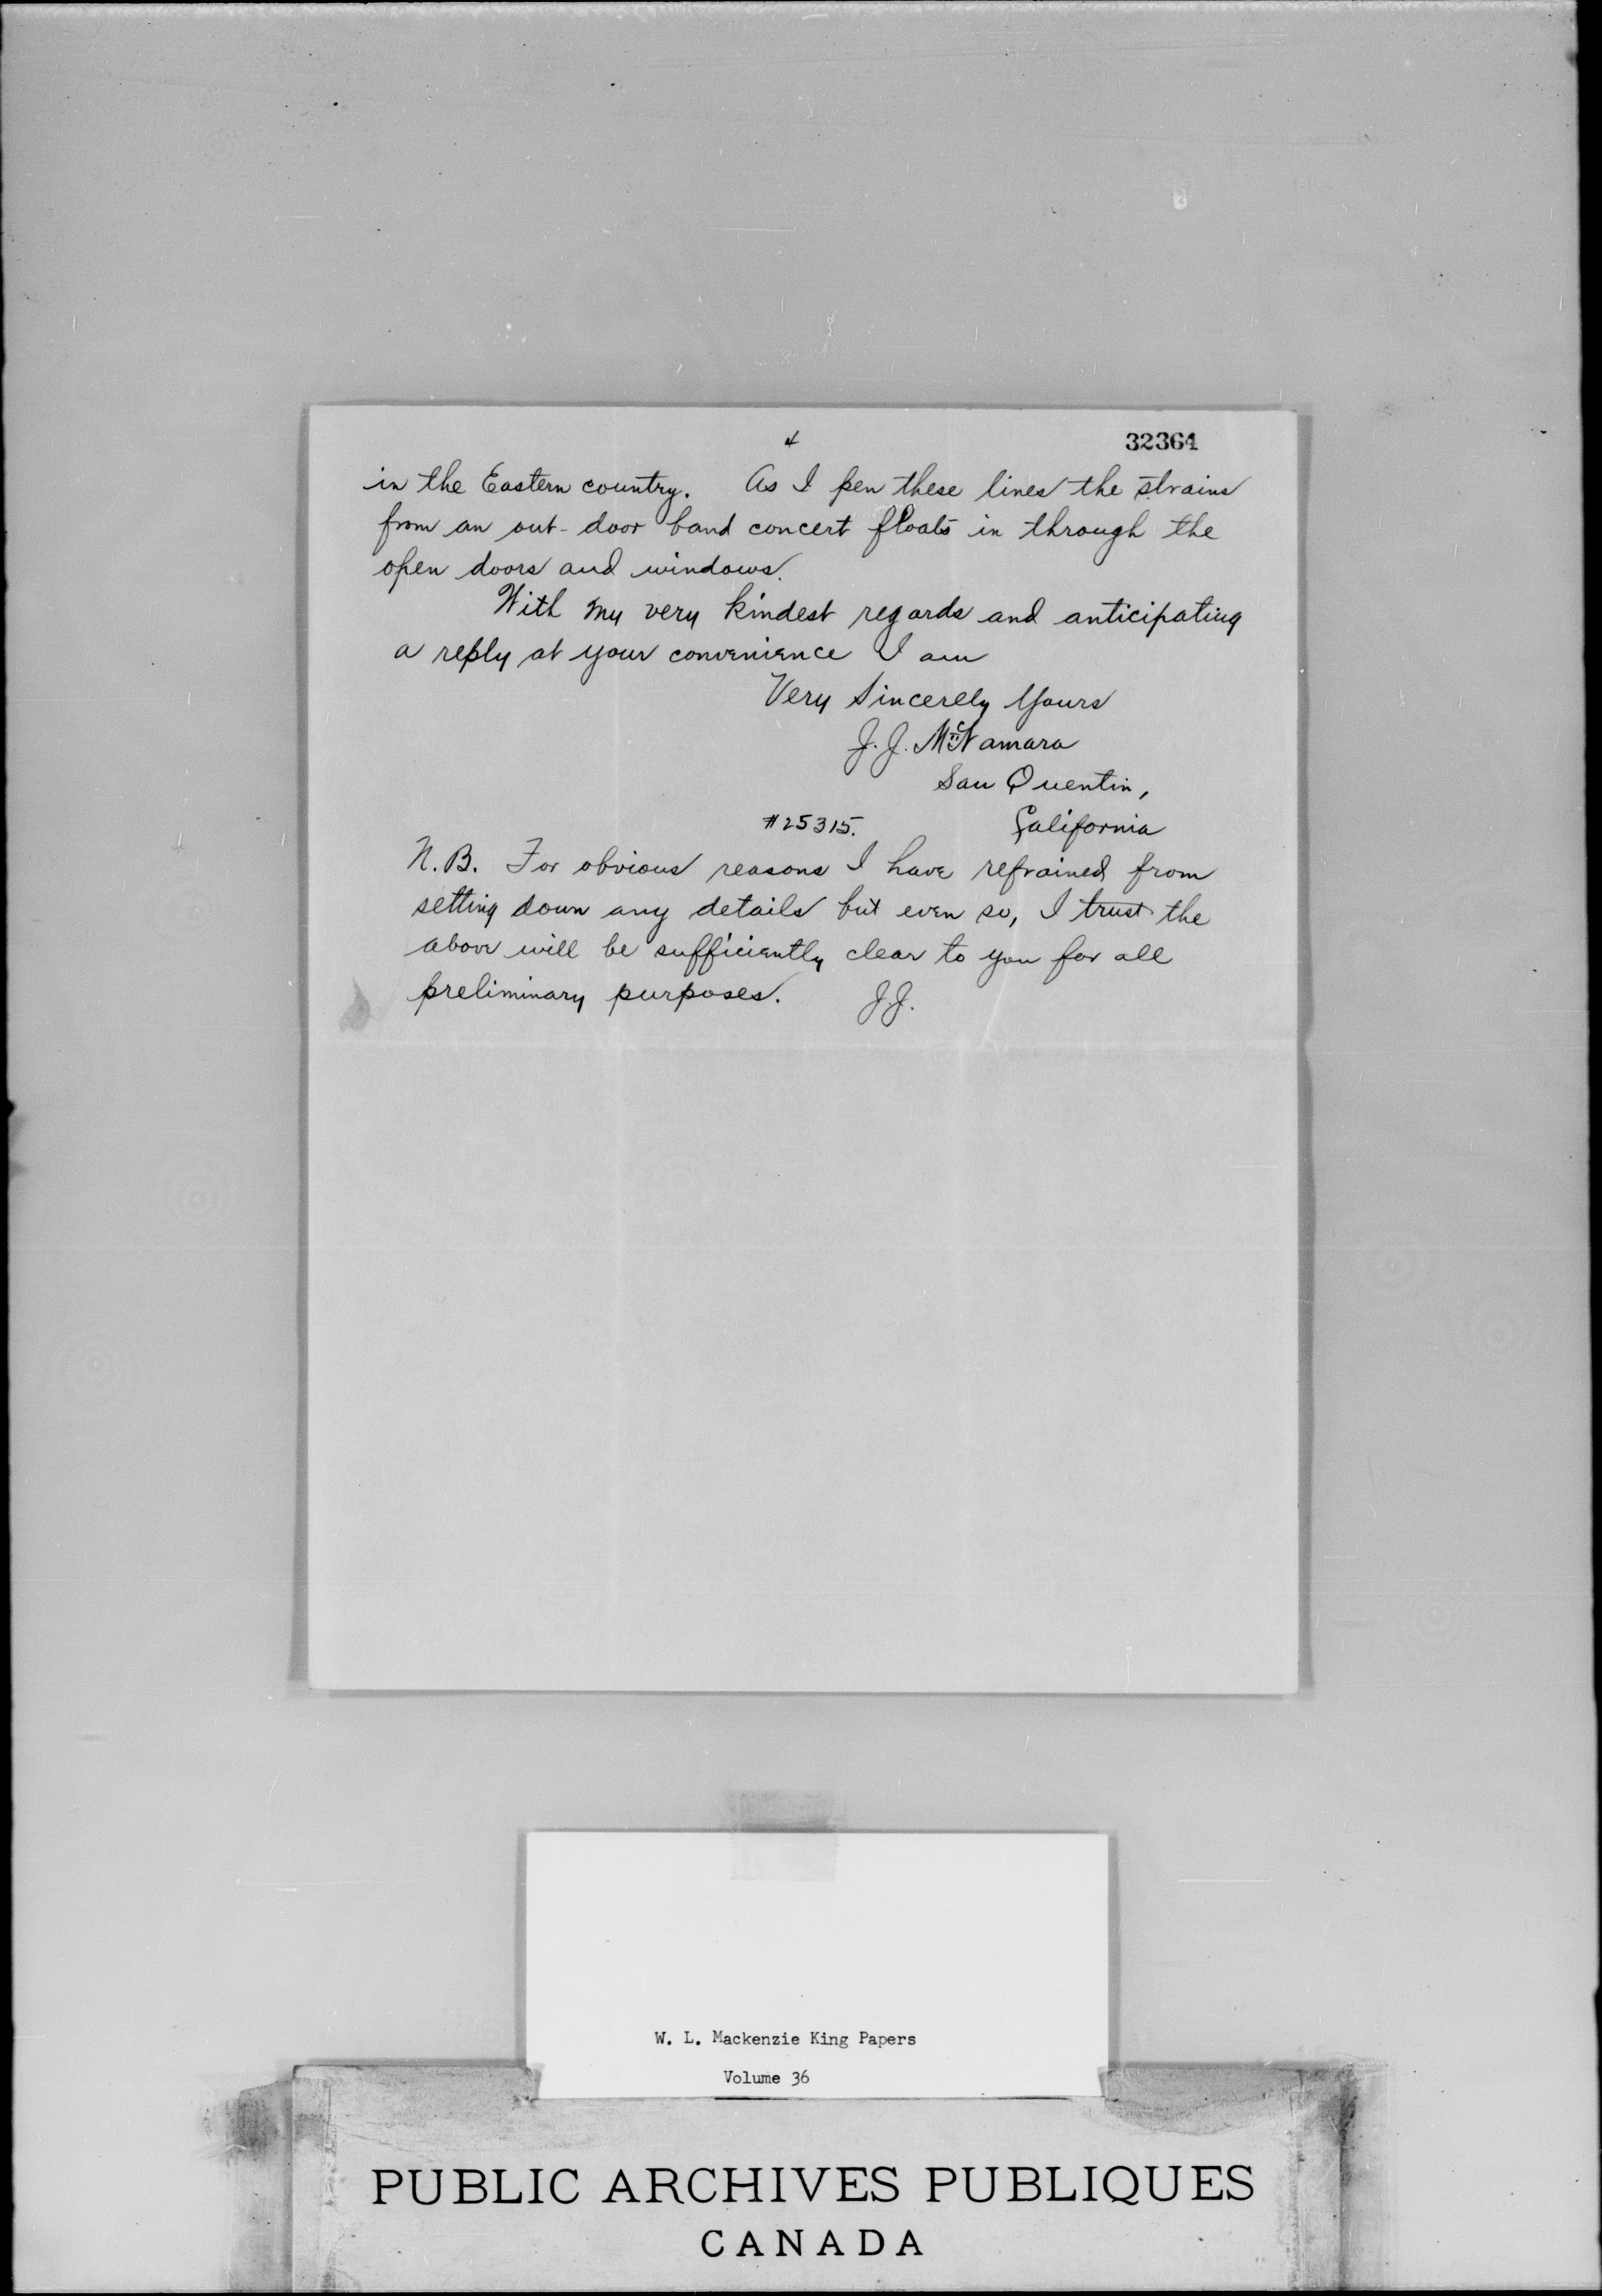 4
32364
in the Eastern country. As I pen these lines the strains
from an out-door band concert floats in through the
open doors and windows.
With my very kindest regards and anticipating
a reply at your convenience I am
Very Sincerely Yours
J. J. McNamara
San Quentin,
#25315. California
N.B. For obvious reasons I have refrained from
setting down any details but even so, I trust the
above will be sufficiently clear to you for all
preliminary purposes. J.J.
W. L. Mackenzie King Papers
Volume 36
PUBLIC ARCHIVES PUBLIQUES
CANADA